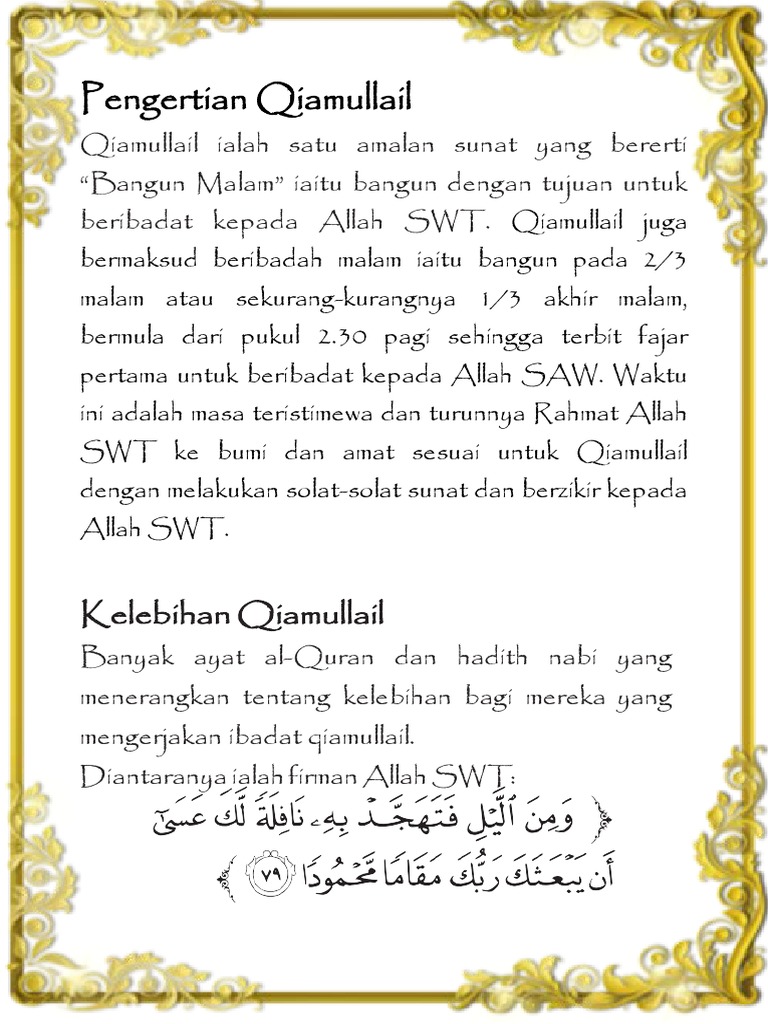 Pengertian Qiamullail
Qiamullail ialah satu amalan sunat yang bererti
“Bangun Malam” iaitu bangun dengan tujuan untuk
beribadat kepada Allah SWT. Qiamullail juga
bermaksud beribadah malam iaitu bangun pada 2/3
malam atau sekurang-kurangnya 1/3 akhir malam,
bermula dari pukul 2.30 pagi sehingga terbit fajar
pertama untuk beribadat kepada Allah SAW. Waktu
ini adalah masa teristimewa dan turunnya Rahmat Allah
SWT ke bumi dan amat sesuai untuk Qiamullail
dengan melakukan solat-solat sunat dan berzikir kepada
Allah SWT.
Kelebihan Qiamullail
Banyak ayat al-Quran dan hadith nabi yang
menerangkan tentang kelebihan bagi mereka yang
mengerjakan ibadat qiamullail.
Diantaranya ialah firman Allah SWT:
﴿ وَمِنَ ٱلَّيۡلِ فَتَهَجَّدۡ بِهِۦ نَافِلَةً لَّكَ عَسَىٰٓ
أَن يَبۡعَثَكَ رَبُّكَ مَقَامًا مَّحۡمُودًا ٧٩ ﴾